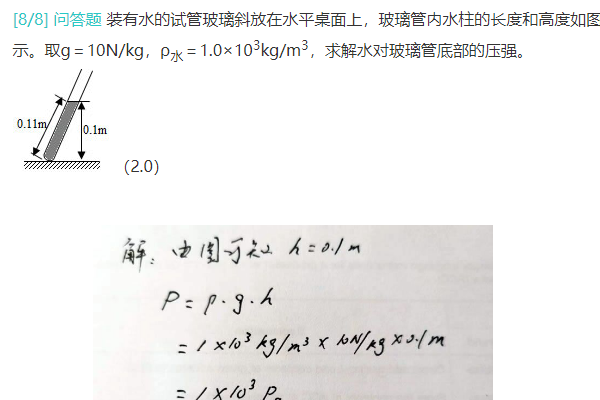 [8/8] 问答题 装有水的试管玻璃斜放在水平桌面上，玻璃管内水柱的长度和高度如图
示。取g = 10N/kg，ρ水 = 1.0×10³kg/m³，求解水对玻璃管底部的压强。
0.11m
0.1m
(2.0)
解：由图可知 h=0.1m
P=ρ·g·h
=1×10³kg/m³×10N/kg×0.1m
=1×10³Pa